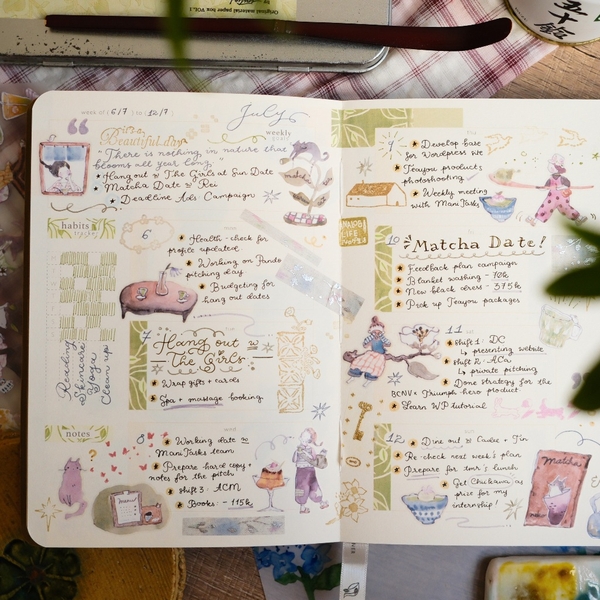 Original material paper box VOL.1
week of (6/7) to (12/7)
July
weekly
it's a
Beautiful day
"There is nothing in nature that
blooms all year long."
Hangout w The Girls at Sun Date
Matcha Date w Rei
Deadline Ads Campaign
habits
Reading
Skincare
Yoga
Clean up
notes
6
Health-check for
profile updated
Working on Pando
pitching day
Budgeting for
hang out dates
7
Hang out w
The Girls
Wrap gifts + cards
Spa + massage booking
8
Working date w
ManiTasks team
Prepare hard copy +
notes for the pitch
Shift 3: ACM
Books: -115k
9
Develop base
for Wordpress site
Teayou product
photoshooting
Weekly meeting
with ManiTasks
10
Matcha Date!
Feedback plan campaign
Blanket washing - 72k
New black dress - 375k
Pick up Teayou packages
11
Shift 1: DC
↳ presenting website
Shift 2: ACa
↳ private pitching
Done strategy for the
BCNV x Triumph hero product
Learn WP tutorial
12
Dine out w Cadie + Tin
Re-check next week's plan
Prepare for tmr's lunch
Get Chiikawa as
prize for my
internship!
Matcha